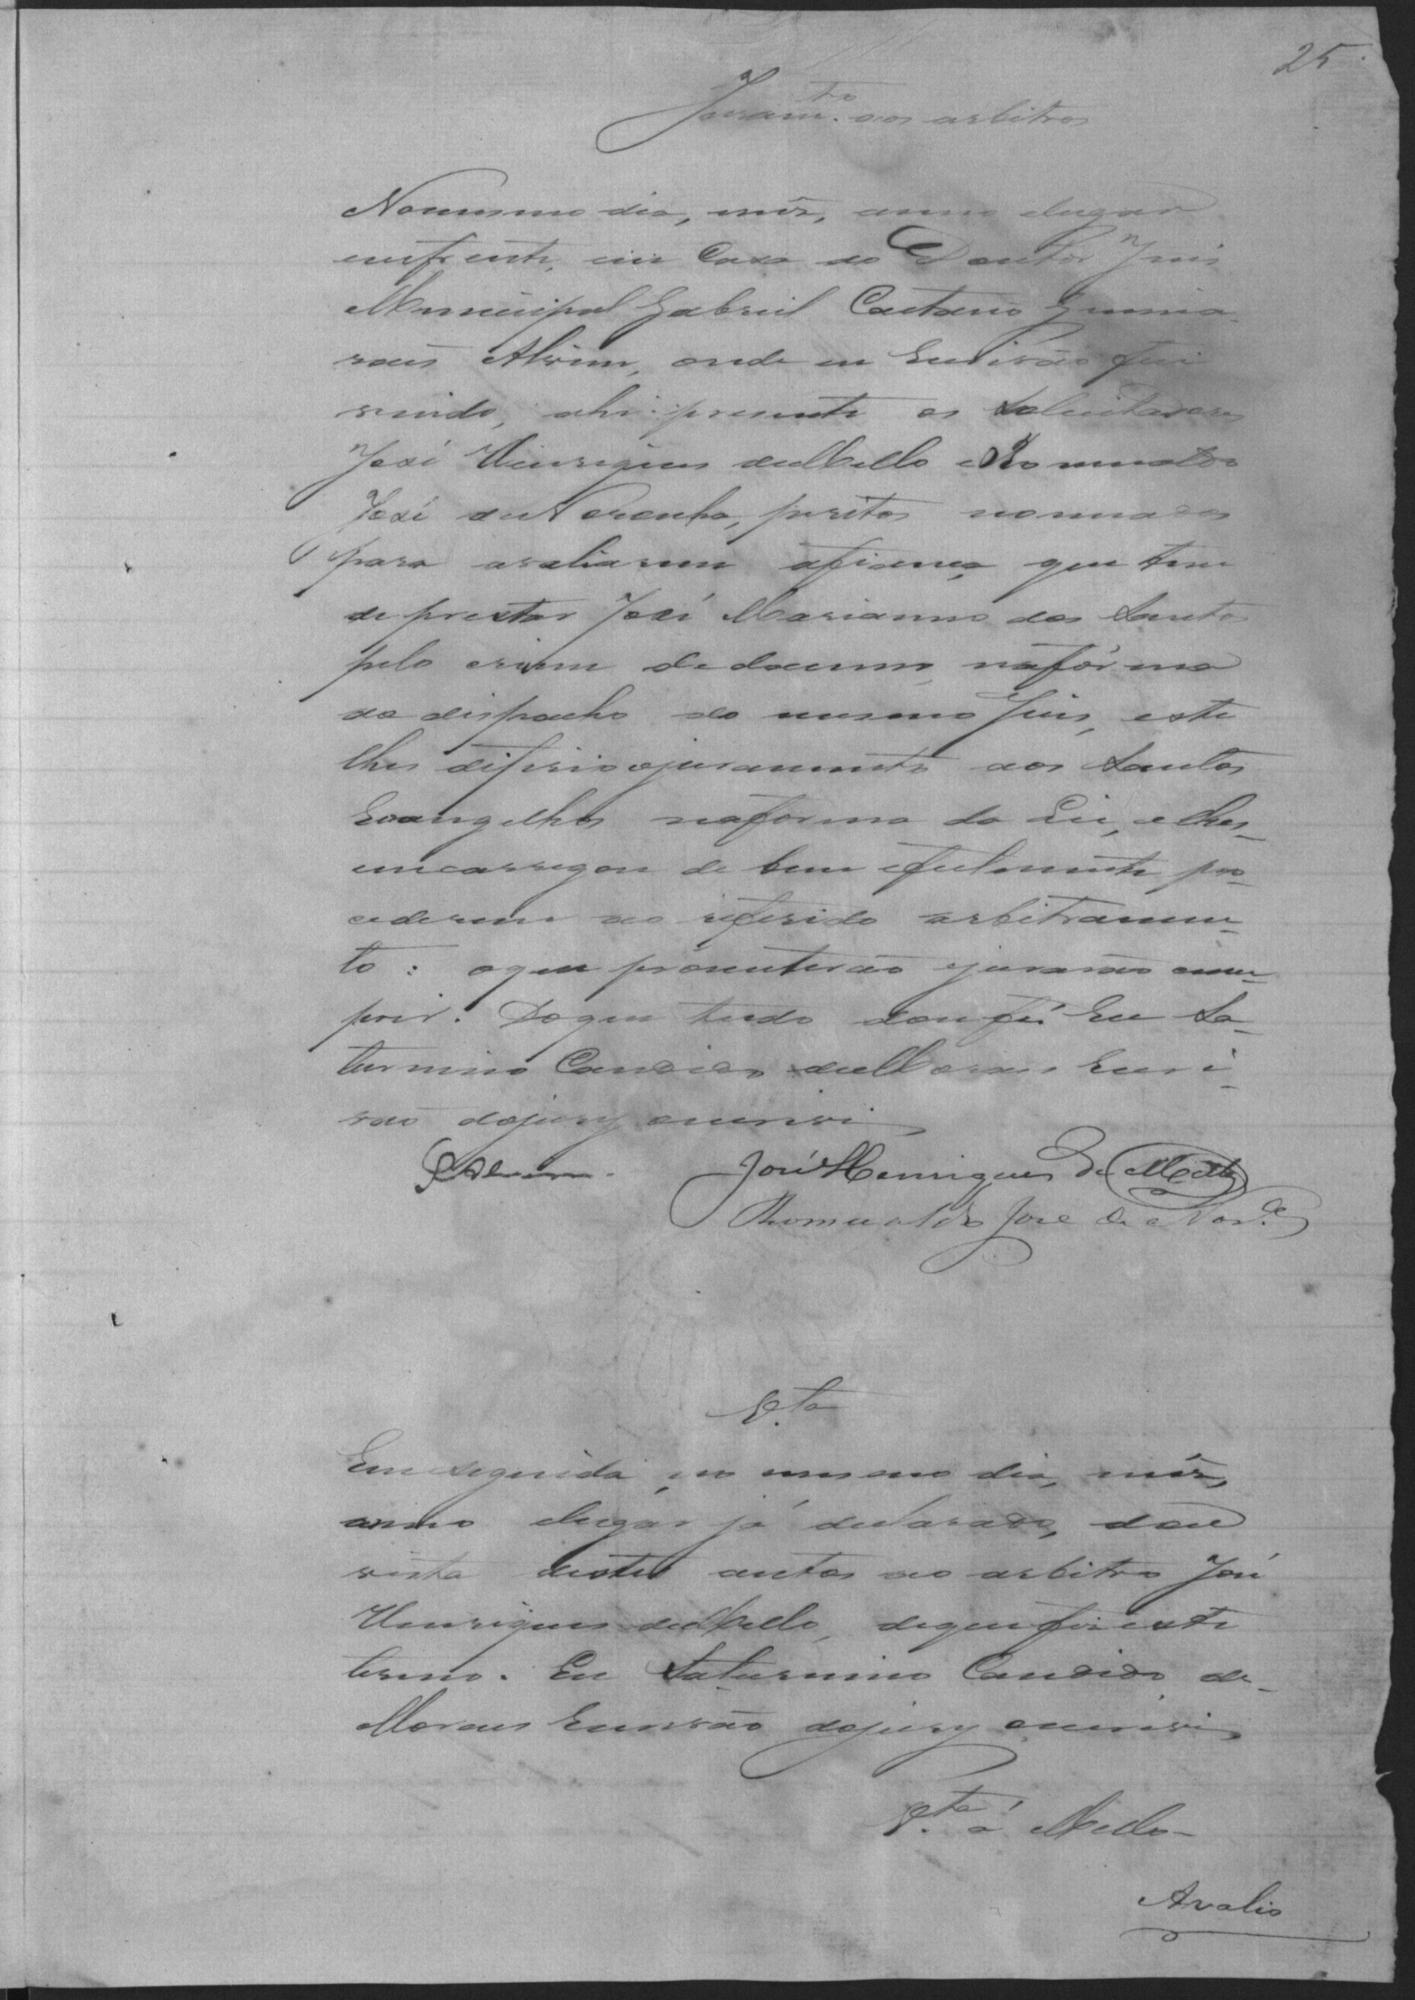 25
Juram.to aos arbitros
No mesmo dia, mês, anno elugar
emfrente, em Casa do Doutor Juis
Municipal Gabriel Caetano Guima-
raes Alvim, onde eu Escrivão fui
vindo, ahi presente os Solicitadores
José Henriques deMello eRomualdo
José deNoronha, peritos nomeados
para avaliarem afiança que tem
de prestar José Marianno dos Santos
pelo crime de damno, nafórma
do despacho do mesmo Juis, este
lhes diferio ojuramento aos Santos
Evangelhos naforma da Lei, elhes
encarregou de bem efielmente pro-
cederem ao referido arbitramen-
to: oque prometerão ejurarão cum-
prir. Doque tudo doufé. Eu Sa-
turnino Candido deMoraes Escri-
vão dojury escrivi
GAlvim.
José Henriques de Mello
Romualdo José de Nor.a
V.ta
Emseguida, no mesmo dia, mês,
anno elugar já declarado, dou
vista destes autos ao arbitro José
Henriques deMello, doque fiz este
termo. Eu Saturnino Candido de-
Moraes Escrivão dojury escrivi
V.ta á Mello-
Avalio